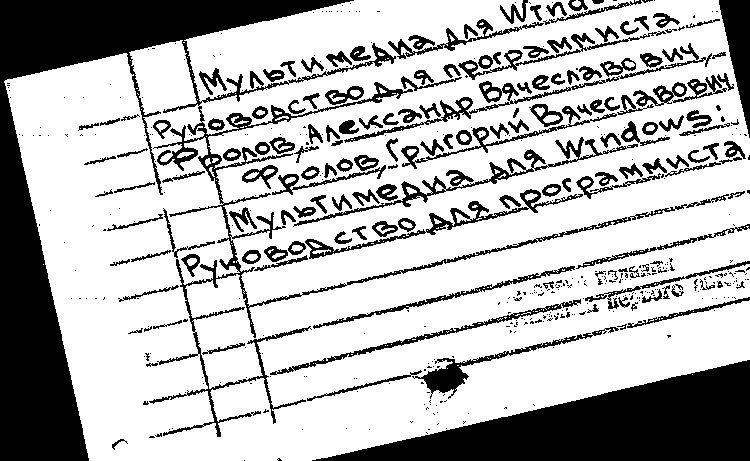 Мультимедиа для Windows
Руководство для программиста
Фролов, Александр Вячеславович,
Фролов, Григорий Вячеславович
Мультимедиа для Windows:
Руководство для программиста
первого